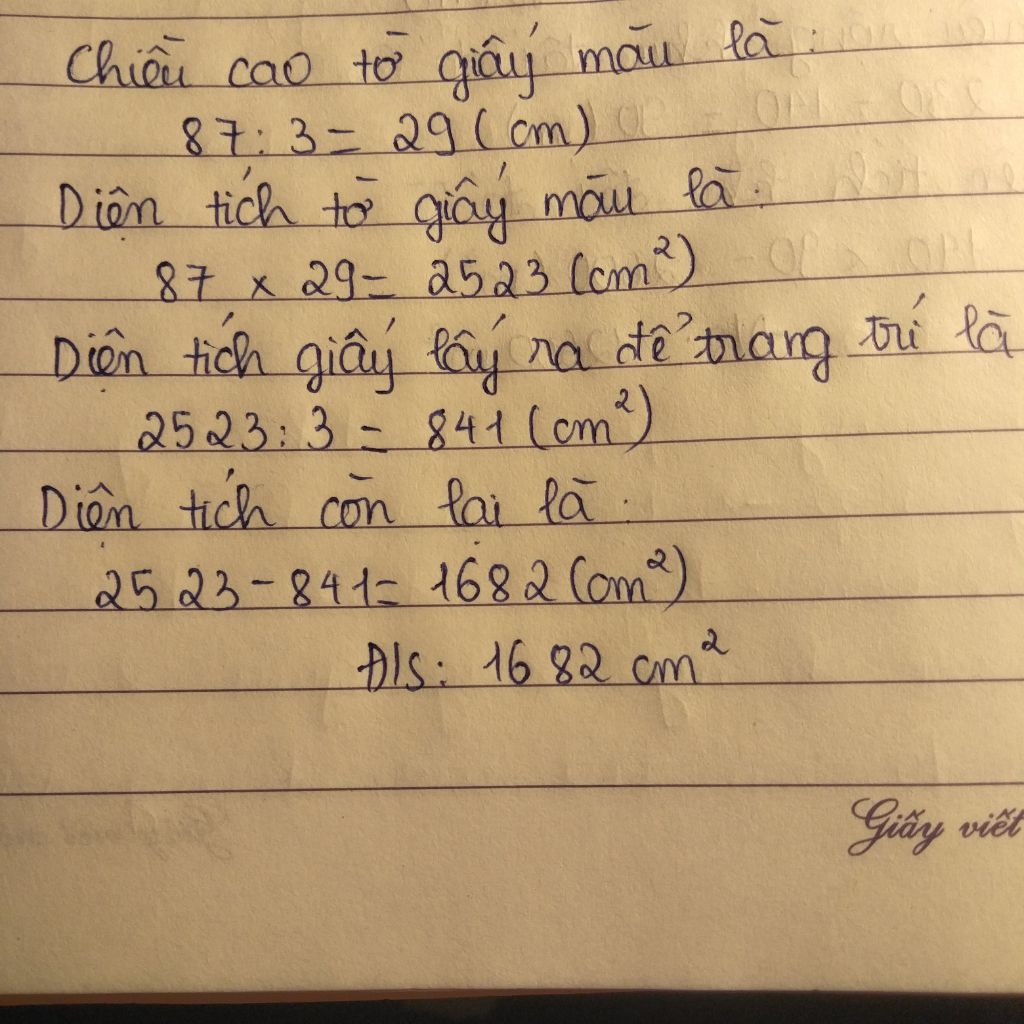 Chiều cao tờ giấy màu là:
87 : 3 = 29 (cm)
Diện tích tờ giấy màu là:
87 x 29 = 2523 (cm²)
Diện tích giấy lấy ra để trang trí là
2523 : 3 = 841 (cm²)
Diện tích còn lại là:
2523 - 841 = 1682 (cm²)
Đ/S: 1682 cm²
Giấy viết